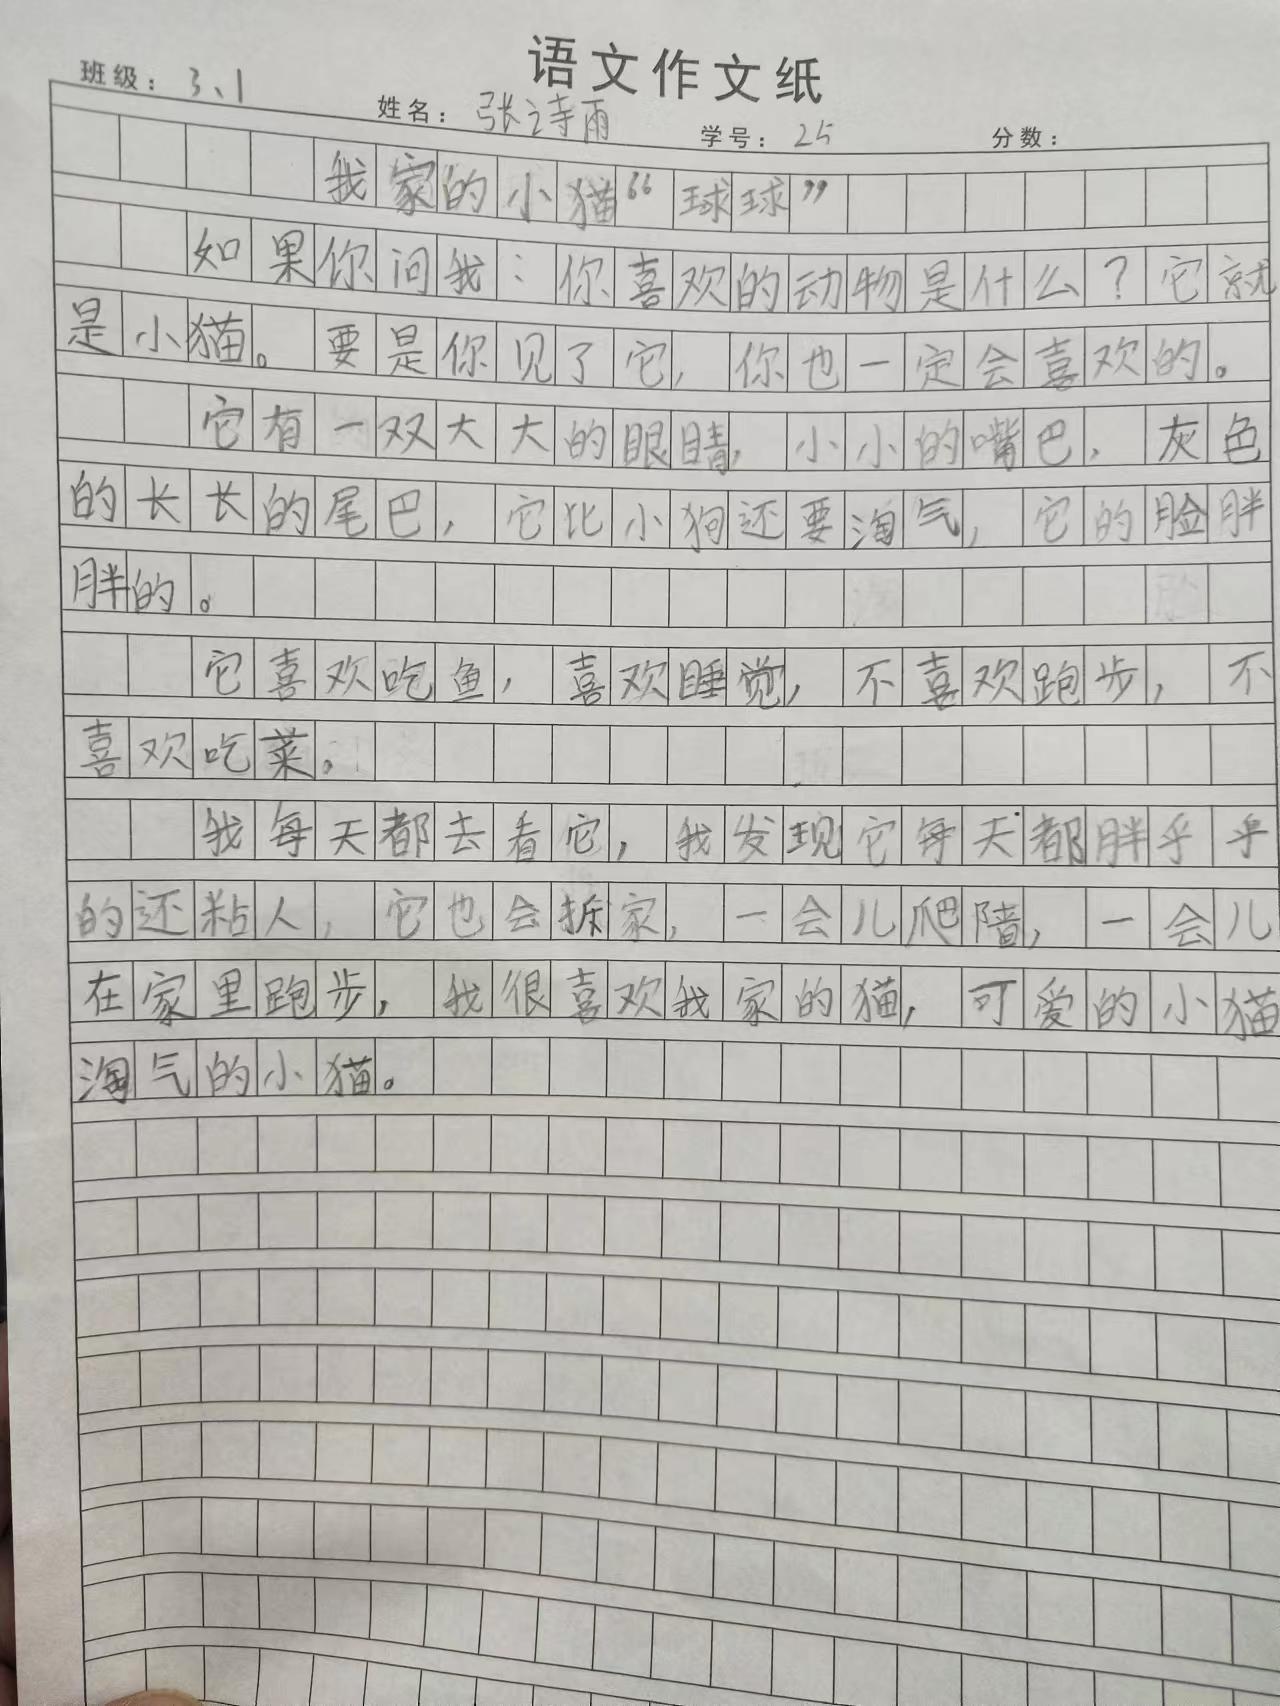 语文作文纸
班级：3、1 姓名：张诗雨 学号：25 分数：
我家的小猫“球球”
如果你问我：你喜欢的动物是什么？它就
是小猫。要是你见了它，你也一定会喜欢的。
它有一双大大的眼睛，小小的嘴巴，灰色
的长长的尾巴，它比小狗还要淘气，它的脸胖
胖的。
它喜欢吃鱼，喜欢睡觉，不喜欢跑步，不
喜欢吃菜。
我每天都去看它，我发现它每天都胖乎乎
的还粘人，它也会拆家，一会儿爬墙，一会儿
在家里跑步，我很喜欢我家的猫，可爱的小猫
淘气的小猫。